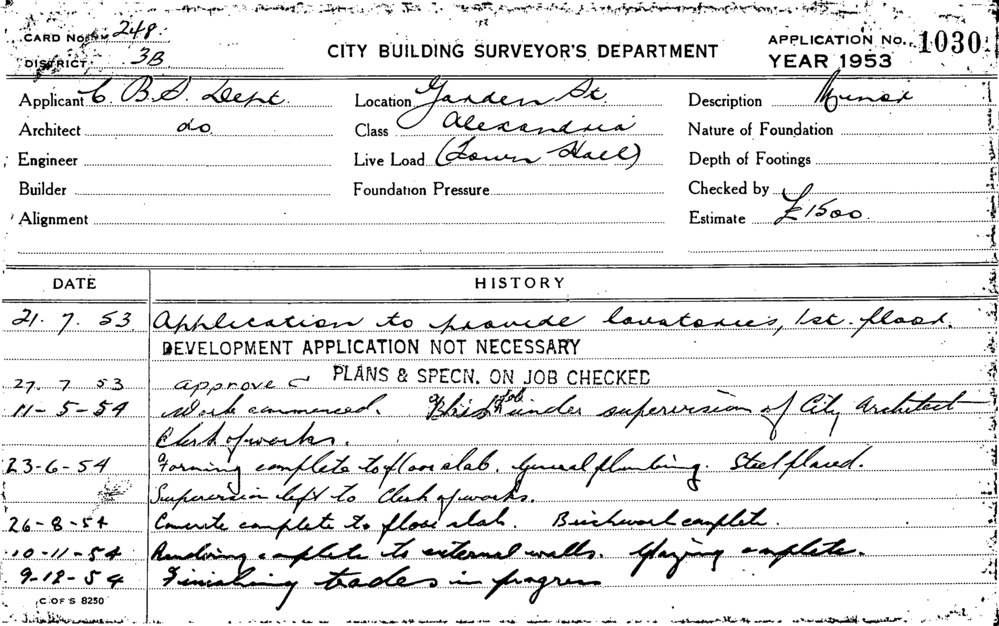 CARD No. 248.
DISTRICT 3B
CITY BUILDING SURVEYOR'S DEPARTMENT
APPLICATION No. 1030
YEAR 1953
Applicant C. B. S. Dept.
Architect do
Engineer
Builder
Alignment
Location Garden St.
Class Alexandria
Live Load (Town Hall)
Foundation Pressure
Description Minor
Nature of Foundation
Depth of Footings
Checked by
Estimate £1500
DATE HISTORY
21. 7. 53 Application to provide lavatories, 1st. floor.
DEVELOPMENT APPLICATION NOT NECESSARY
27. 7 53 approved PLANS & SPECN. ON JOB CHECKED
11-5-54 Work commenced. This Job under supervision of City Architect
Clerk of works.
23-6-54 Forming complete to floor slab. General plumbing. Steel placed.
Supervision left to Clerk of works.
26-8-54 Concrete complete to floor slab. Brickwork complete.
10-11-54 Rendering complete to external walls. Glazing complete.
9-12-54 Finishing trades in progress
C OF S 8250